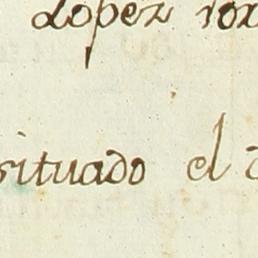 Lopez
situado el